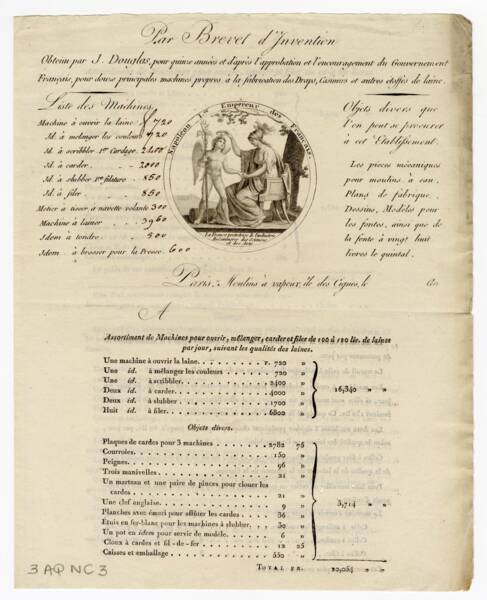 Par Brevet d'Invention
Obtenu par J. Douglas, pour quinze années et d'après l'approbation et l'encouragement du Gouvernement
Français, pour douze principales machines propres à la fabrication des Draps, Casimirs et autres étoffes de laine.
Liste des Machines,
Machine à ouvrir la laine 720
Id. à mélanger les couleurs 720
Id. à scribbler 1er Cardage. 2400
Id. à carder 2000
Id. à slubber 1re filature 850
Id. à filer 850
Métier à tisser à navette volante 300
Machine à lainer 3960
Idem à tondre 500
Idem à brosser pour la Presse. 600
Napoléon 1er Empereur des Français.
La France protectrice de l'industrie,
des Sciences
et des Arts
Objets divers que
l'on peut se procurer
à cet Etablissement.
Les pièces mécaniques
pour moulins à eau.
Plans de fabrique.
Dessins, Modèles pour
les fontes, ainsi que de
la fonte à vingt huit
livres le quintal.
Paris. Moulins à vapeur, île des Cignes, le An
A
Assortiment de Machines pour ouvrir, mélanger, carder et filer de 100 à 120 liv. de laines
par jour, suivant les qualités des laines.
Une machine à ouvrir la laine. F. 720 »
Une id. à mélanger les couleurs 720 »
Une id. à scribbler. 2400 »
Deux id. à carder. 4000 »
Deux id. à slubber 1700 »
Huit id. à filer. 6800 »
16,340 » »
Objets divers.
Plaques de cardes pour 3 machines 2782 75
Courroies. 159 »
Peignes. 96 »
Trois manivelles 21 »
Un marteau et une paire de pinces pour clouer les
cardes 21 »
Une clef anglaise. 9 »
Planches avec émeri pour affûter les cardes. 36 »
Etuis en fer-blanc pour les machines à slubber. 30 »
Un pot en idem pour servir de modèle. 6 »
Cloux à cardes et fil-de-fer 12 25
Caisses et emballage. 550 »
3,714 » »
TOTAL FR. 20,054 » »
3 AP NC 3